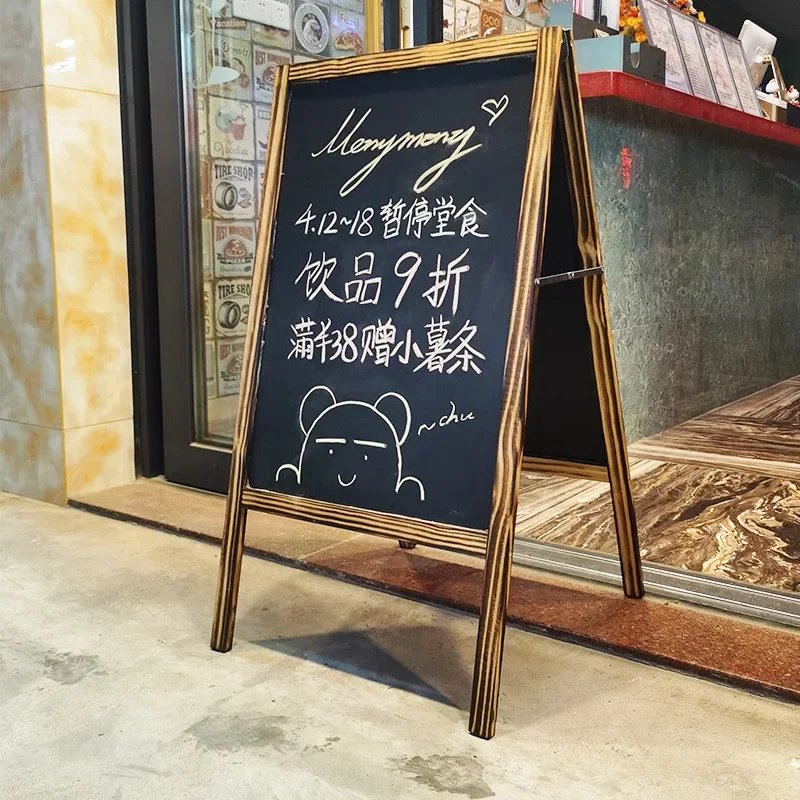 Menymony
4.12~18 暂停堂食
饮品9折
满¥38赠小薯条
~chu
Vacation
TIRE SHOP
PIZZA
TIRE SHOP